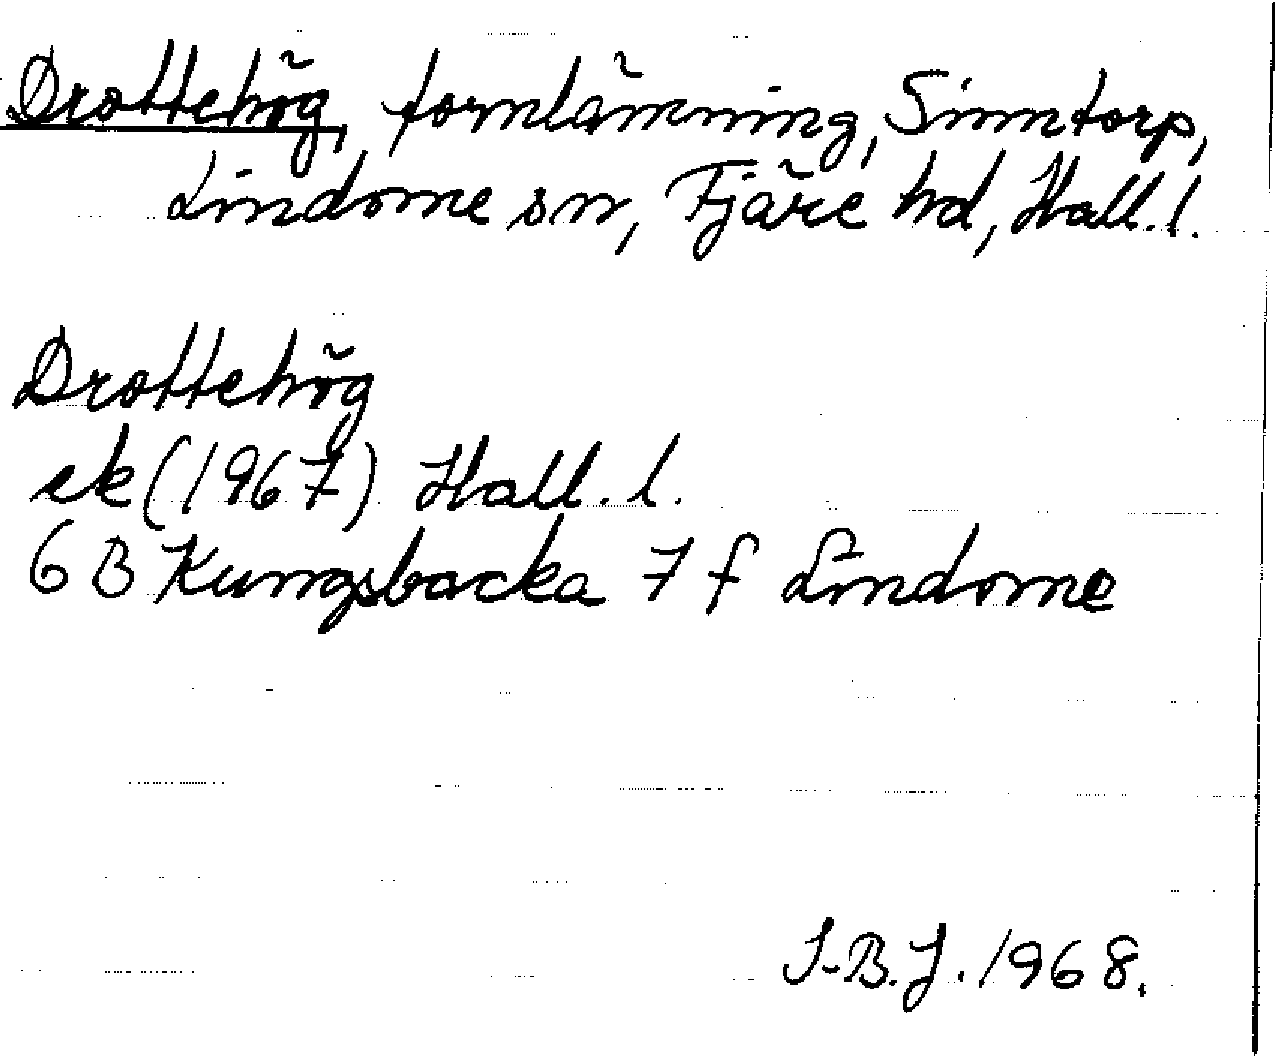 Drottehög, fornlämning, Sinntorp,
Lindome sn, Fjäre hd, Hall.l.
Drottehög
ek (1967) Hall.l.
6 B Kungsbacka 7 f Lindome
I-B.J. 1968.